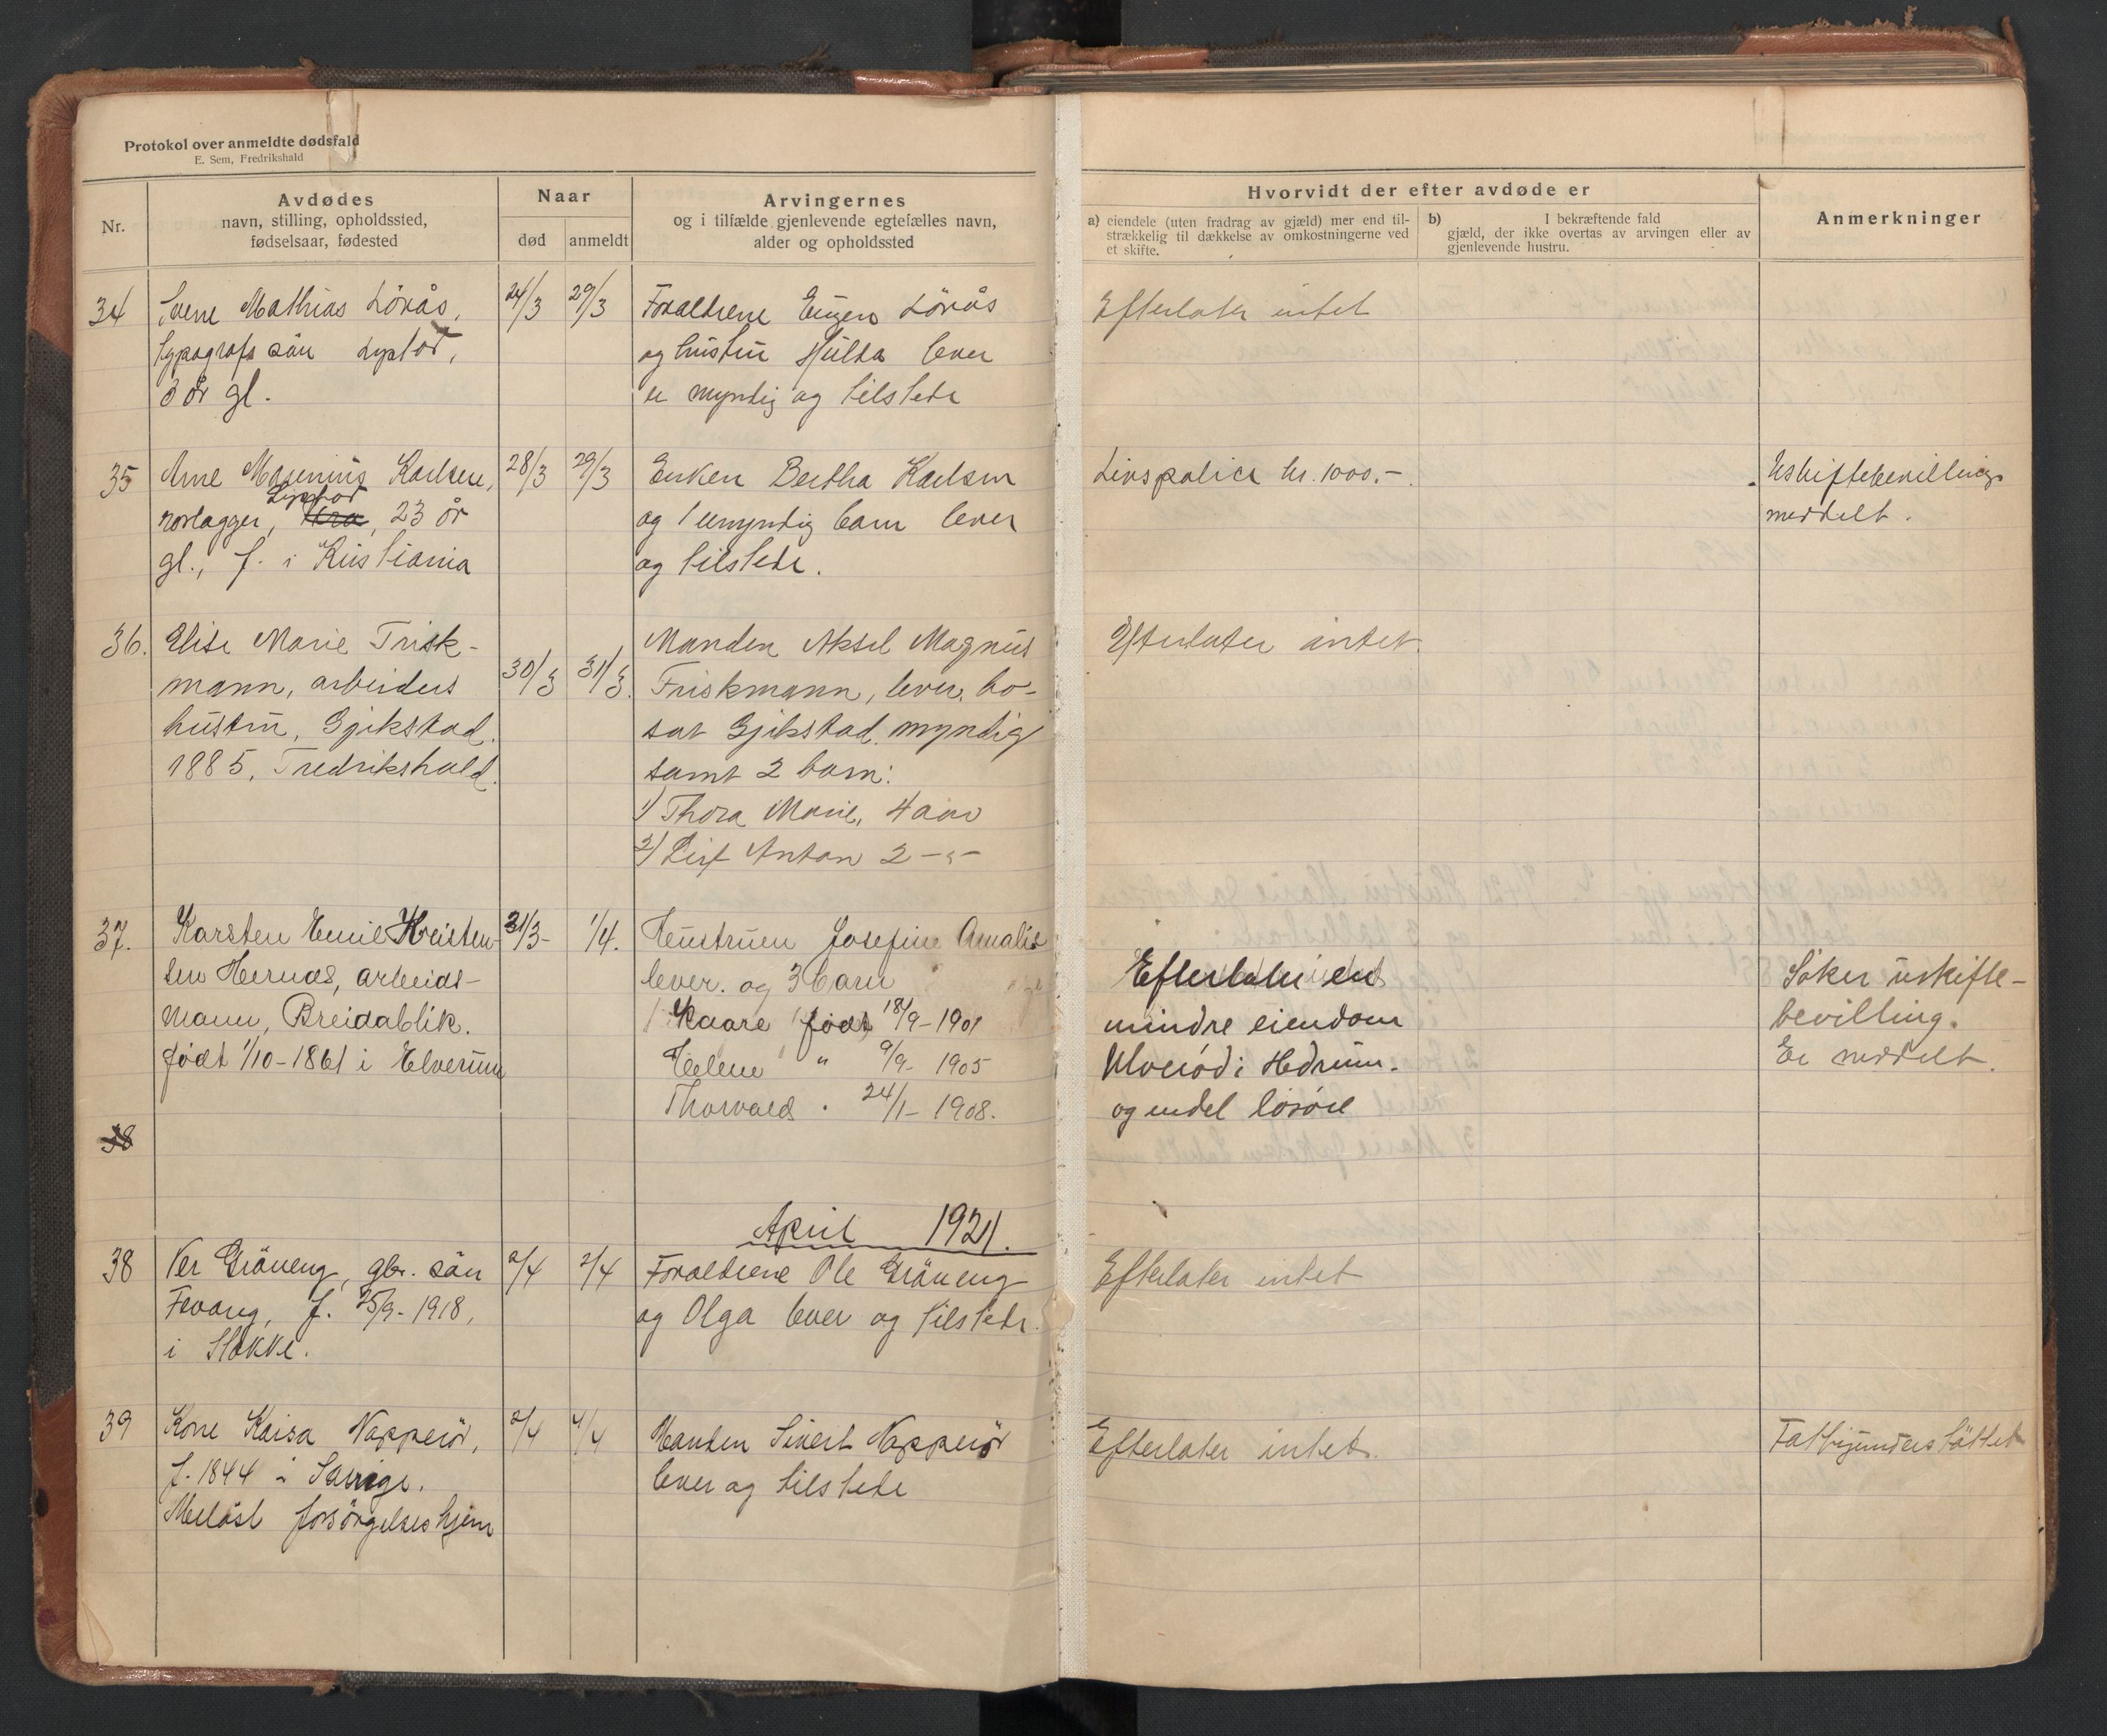 Protokol over anmeldte dødsfald
E. Sem, Fredrikshald
Nr.
Avdødes
navn, stilling, opholdssted,
fødselsaar, fødested
Naar
død
anmeldt
Arvingernes
og i tilfælde gjenlevende egtefælles navn,
alder og opholdssted
Hvorvidt der efter avdøde er
a) eiendele (uten fradrag av gjæld) mer end til-
strækkelig til dækkelse av omkostningerne ved
et skifte.
b) I bekræftende fald
gjæld, der ikke overtas av arvingen eller av
gjenlevende hustru.
Anmerkninger
34
Sverre Mathias Lörås,
typografs sön Lystad,
3 år gl.
24/3
29/3
Forældrene Eugen Lörås
og hustru Hulda lever
er myndig og tilstede
Efterlater intet
35
Arne Magnnius Karlsen,
Lystad
rørlægger, 23 år
gl., f. i Kristiania
28/3
29/3
Enken Bertha Karlsen
og 1 umyndig barn lever
og tilstede.
Livspolice kr. 1000.-
Uskiftebevilling
meddelt.
36.
Elise Marie Frisk-
mann, arbeiders
hustru, Gjekstad.
1885, Fredrikshald.
30/3
31/3.
Manden Aksel Magnus
Friskmann, lever, bo-
sat Gjekstad. myndig
samt 2 barn:
1) Thora Marie, 4 aar
2) Leif Anton 2 -"-
Efterlater intet.
37.
Karsten Emil Kristen-
sen Hernæs, arbeids-
mann, Breidablik.
født 1/10-1861 i Elverum
31/3-
1/4.
Hustruen Josefine Amalie
lever. og 3 barn
Kaare født 18/9-1901
Helene " 9/9- 1905
Thorvald . 24/1- 1908.
Efterlater en
mindre eiendom
Ulverød i Hedrum.
og endel løsøre
Søker uskifte-
bevilling.
Er meddelt.
38
April 1921.
38
Per Gråneng, gbr. sön
Fevang, f. 25/9-1918,
i Stokke.
2/4
2/4
Forældrene Ole Gråneng
og Olga lever og tilstede.
Efterlater intet
39
Kone Kaisa Napperöd,
f. 1844 i Sverige.
Meløst forsörgelseshjem
2/4
4/4
Manden Sivert Napperöd
lever og tilstede
Efterlater intet.
Fattigunderstöttet